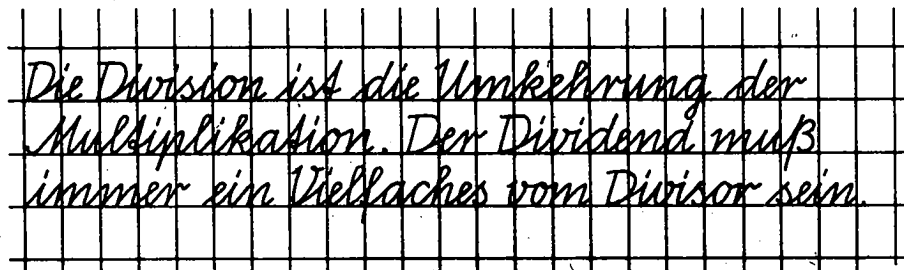 Die Division ist die Umkehrung der
Multiplikation. Der Dividend muß
immer ein Vielfaches vom Divisor sein.